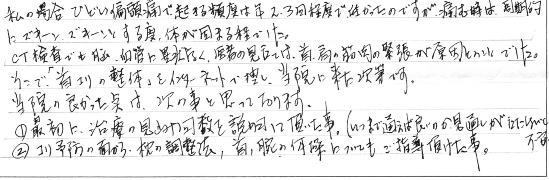 私の場合 ひどい偏頭痛で起きる頻度は年2、3回程度で 他の時は 周期的
にズキーン ズキーンする度、体が
CT検査でも脳、血管に異常なく、医者の見立ては、首、肩の筋肉の緊張が原因ということでした。
そこで「首コリの整体」をインターネットで探し、当院に来た次第です。
当院の良かった点は、次の事と思っております。
①最初に、治療の見通し回数を説明して頂いた事。(いつまで通えば良いか見通しが
②コリ予防の面から、枕の調整法、首、腕の体操についてもご指導頂けた事。 不安